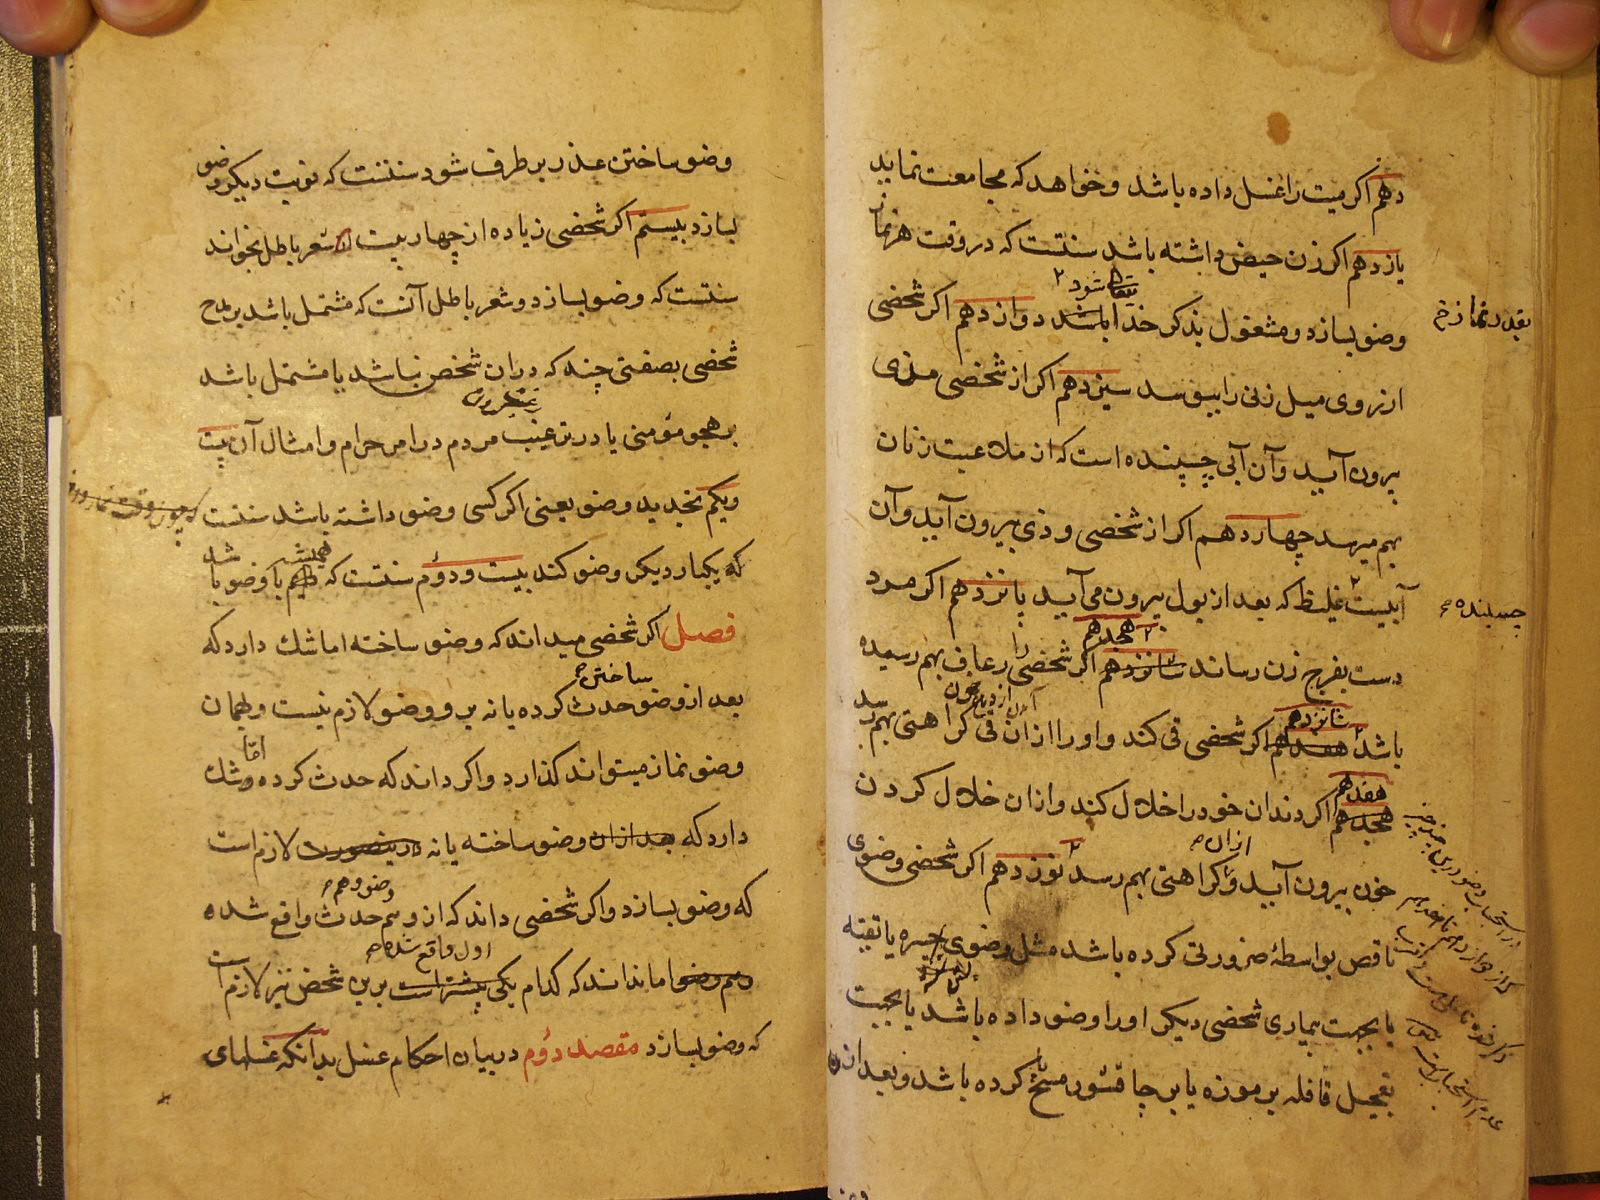 دهم اکر میت را غسل داده باشد و خواهد که مجامعت نماید
یازدهم اکر زن حیض داشته باشد سنتست که در وقت هر نماز
شود
وضو بسازد و مشغول بذکر خدا باشد دوازدهم اکر شخصی
بقدر نماز خ
از روی میل زنی را ببوسد سیزدهم اکر از شخصی مذی
بیرون آید و آن آبی چسپنده است که از ملاعبت زنان
بهم میرسد چهاردهم اکر از شخصی وذی بیرون آید و آن
آبیست غلیظ که بعد از بول بیرون می آید پانزدهم اکر مرد
چسبنده
هجدهم
دست بفرج زن رساند شانزدهم اکر شخصی را رعاف بهم رسیده
شانزدهم
باشد هفدهم اکر شخصی قی کند و او را از ان قی کراهتی بهم رسد
هفدهم
هجدهم اکر دندان خود را خلال کند و از ان خلال کردن
از ان
خون بیرون آید و کراهتی بهم رسد نوزدهم اکر شخصی وضوی
ناقص بواسطهٔ ضرورتی کرده باشد مثل وضوی جبیره یا تقیه
یا بجهت بیماری شخصی دیکر او را وضو داده باشد یا بجهت
تعجیل قافله بر موزه یا بر جاقشور مسح کرده باشد و بعد از ان
وضو ساختن عذر بر طرف شود سنتست که نوبت دیکر وضو
بسازد بیستم اکر شخصی زیاده از چهار بیت از شعر باطل بخواند
سنتست که وضو بسازد و شعر باطل آنست که مشتمل باشد بر مدح
شخصی بصفتی چند که در ان شخص نباشد یا مشتمل باشد
بر هجو مؤمنی یا در ترغیب مردم در امر حرام و امثال آن بیست
ویکم تجدید وضو یعنی اکر کسی وضو داشته باشد سنتست
که یکبار دیکر وضو کند بیست و دوم سنتست که دایم با وضو باشد
همیشه
فصل اکر شخصی میداند که وضو ساخته اما شک دارد که
ساختن
بعد از وضو حدث کرده یا نه برو وضو لازم نیست و بهمان
وضو نماز میتواند کذارد و اکر داند که حدث کرده و شک
اما
دارد که بعد از ان وضو ساخته یا نه درینصورت لازم است
وضو و هم
که وضو بسازد و اکر شخصی داند که ازو هم حدث واقع شده
اول واقع شده
وهم وضو اما نداند که کدام یکی پیشتر است برین شخص نیز لازم است
که وضو بسازد مقصد دوم در بیان احکام غسل بدانکه غسلهای